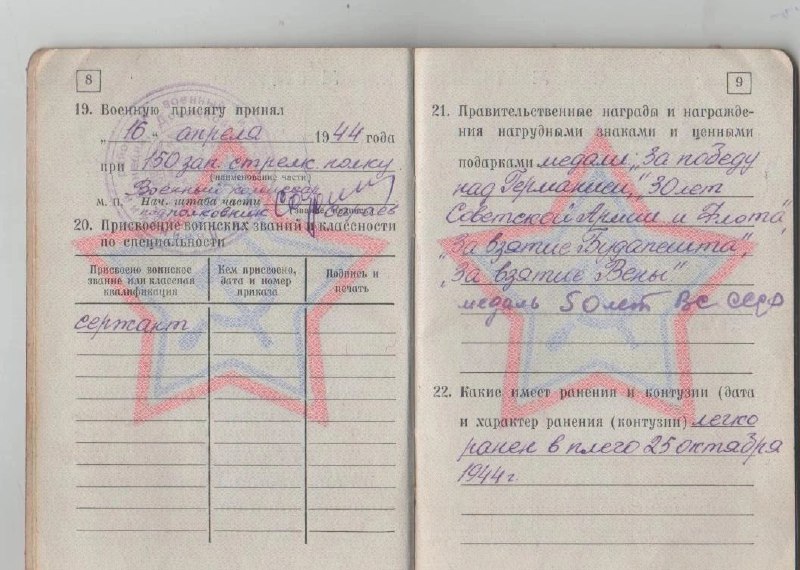 8
19. Военную присягу принял
„ 16 “ апреля 1944 года
при 150 зап. стрелк. полку
(наименование части)
Военный комиссар
М. П. Нач. штаба части
подполковник
20. Присвоение воинских званий и классности
по специальности
Присвоено воинское звание или классная квалификация
Кем присвоено, дата и номер приказа
Подпись и печать
сержант
9
21. Правительственные награды и награжде-
ния нагрудными знаками и ценными
подарками медали „За победу
над Германией", 30 лет
Советской Армии и Флота",
„За взятие Будапешта",
„За взятие Вены"
медаль 50 лет ВС СССР
22. Какие имеет ранения и контузии (дата
и характер ранения (контузии) легко
ранен в плечо 25 октября
1944 г.